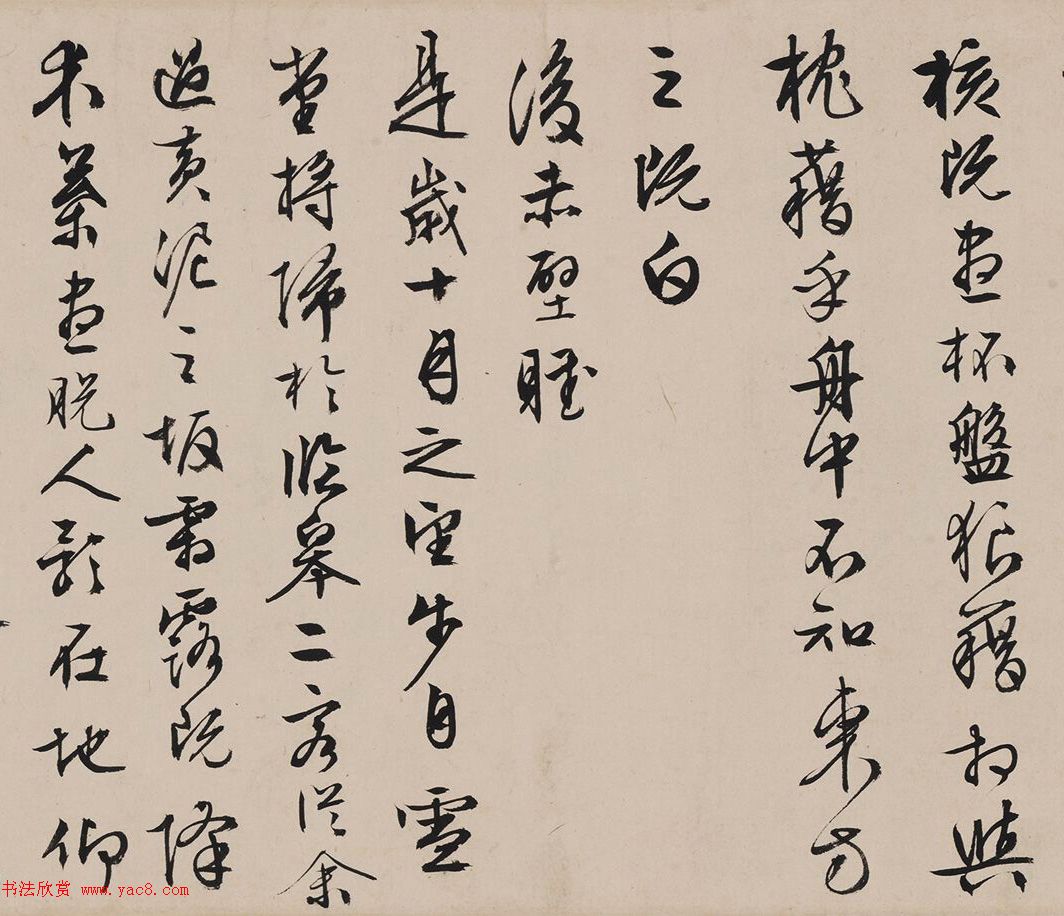 核既盡杯盤狼藉相與
枕藉乎舟中不知東方
之既白
後赤壁賦
是歲十月之望步自雪
堂將歸於臨皋二客從余
過黃泥之坂霜露既降
木葉盡脫人影在地仰
书法欣赏 www.yac8.com